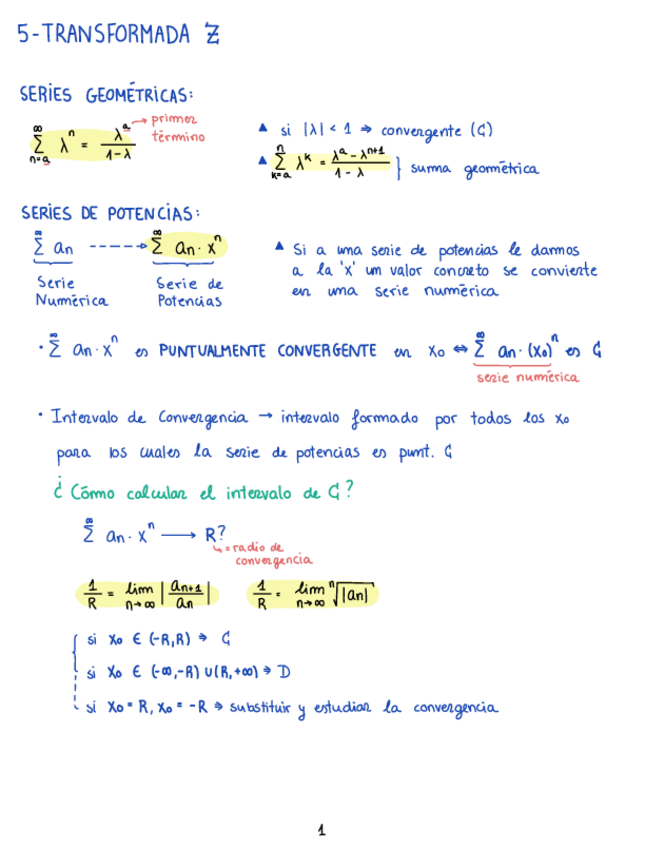 5-TRANSFORMADA Z
SERIES GEOMÉTRICAS:
∞ Σ n=a λ^n = λ^a / 1-λ → primer término
▲ si |λ| < 1 ⇒ convergente (C)
▲ n Σ k=a λ^k = λ^a - λ^(n+1) / 1 - λ } suma geométrica
SERIES DE POTENCIAS:
∞ Σ an ----→ ∞ Σ an · x^n
Serie Numérica
Serie de Potencias
▲ Si a una serie de potencias le darmos
a la 'x' um valor concreto se conviente
en uma serie numérica
· ∞ Σ an · x^n es PUNTUALMENTE CONVERGENTE en x0 ⇔ ∞ Σ an · (x0)^n es C
serie numérica
· Intervalo de Convergencia → intervalo formado por todos los x0
para los cuales la serie de potencias es punt. C
¿Cómo calcular el intervalo de C?
∞ Σ an · x^n → R?
↳ = radio de
convergencia
1/R = lim n→∞ |an+1 / an|
1/R = lim n→∞ n√|an|
si x0 ∈ (-R,R) ⇒ C
si x0 ∈ (-∞,-R) ∪ (R,+∞) ⇒ D
si x0 = R, x0 = -R ⇒ substituir y estudiar la convergencia
1